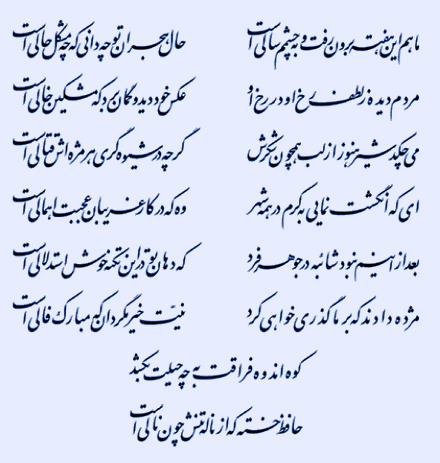 ماهم این هفته برون رفت و به چشمم سالی است    حال هجران تو چه دانی که چه مشکل حالی است
مردم دیده ز لطف رخ او در رخ او    عکس خود دید و گمان برد که مشکین خالی است
می چکد شیر هنوز از لب همچون شکرش    گرچه در شیوه گری هر مژه اش قتالی است
ای که انگشت نمایی به کرم در همه شهر    وه که در کار غریبان عجبت اهمالی است
بعد از اینم نبود شائبه در جوهر فرد    که دهان تو در این نکته خوش استدلالی است
مژده دادند که بر ما گذری خواهی کرد    نیّت خیر مگردان که مبارک فالی است
کوه اندوه فراقت به چه حیلت بکشد
حافظ خسته که از ناله تنش چون نالی است